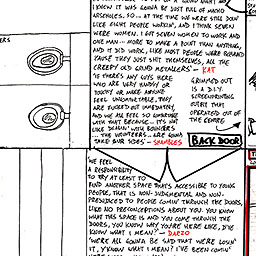 I KNOW IT WAS GONNA BE JUST FULL OF MACHO
ASSHOLES. SO... AT THE TIME WE WERE STILL DOIN'
LIKE EIGHT PEOPLE WORKIN', AND I THINK SEVEN
WERE WOMEN. I GOT SEVEN WOMEN TO WORK AND
ONE MAN – MORE TO MAKE A POINT THAN ANYTHING,
AND IT DID WORK, LIKE MOST PEOPLE WERE
'CAUSE THEY JUST SHIT THEMSELVES, ALL THE
CREEPY OLD GRIND METALLERS' - KAT
'IS THERE'S ANY GUYS HERE
WHO ARE VERY HANDY OR
TOUCHY OR MAKE ANYONE
FEEL UNCOMFORTABLE, THEY
ARE FUCKED OUT IMMEDIATELY,
AND WE ALL FEEL SO COMFORTABLE
WITH THAT BECAUSE... IT'S NOT
LIKE DEALIN' WITH BOUNCERS
- THE VOLUNTEERS.. ARE GONNA
TAKE OUR SIDES' - SHAMBLES
GRIMMED OUT
IS A D.I.Y.
SCREENPRINTING
OUTFIT THAT
OPERATED OUT OF
THE CENTRE
BACK DOOR
'WE FEEL
A RESPONSIBILITY
TO TRY AT LEAST TO
FIND ANOTHER SPACE THAT'S ACCESSIBLE TO YOUNG
PEOPLE, THAT IS NON-JUDGMENTAL AND NON-
PREJUDICED TO PEOPLE COMIN' THROUGH THE DOORS,
LIKE NO PRECONCEPTIONS ABOUT YOU. YOU KNOW
WHAT THIS SPACE IS AND YOU COME THROUGH THE
DOORS, YOU KNOW WHY YOU'RE HERE LIKE, D'YOU
KNOW WHAT I MEAN?' - DARZO
'WE'RE ALL GONNA BE SAD THAT WE'RE LOSIN'
IT, Y'KNOW WHAT I MEAN? I'VE BEEN COMIN'